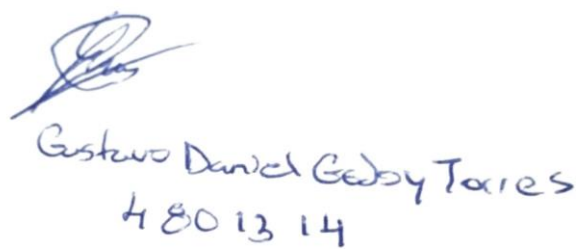 Gustavo Daniel Godoy Torres
4801314